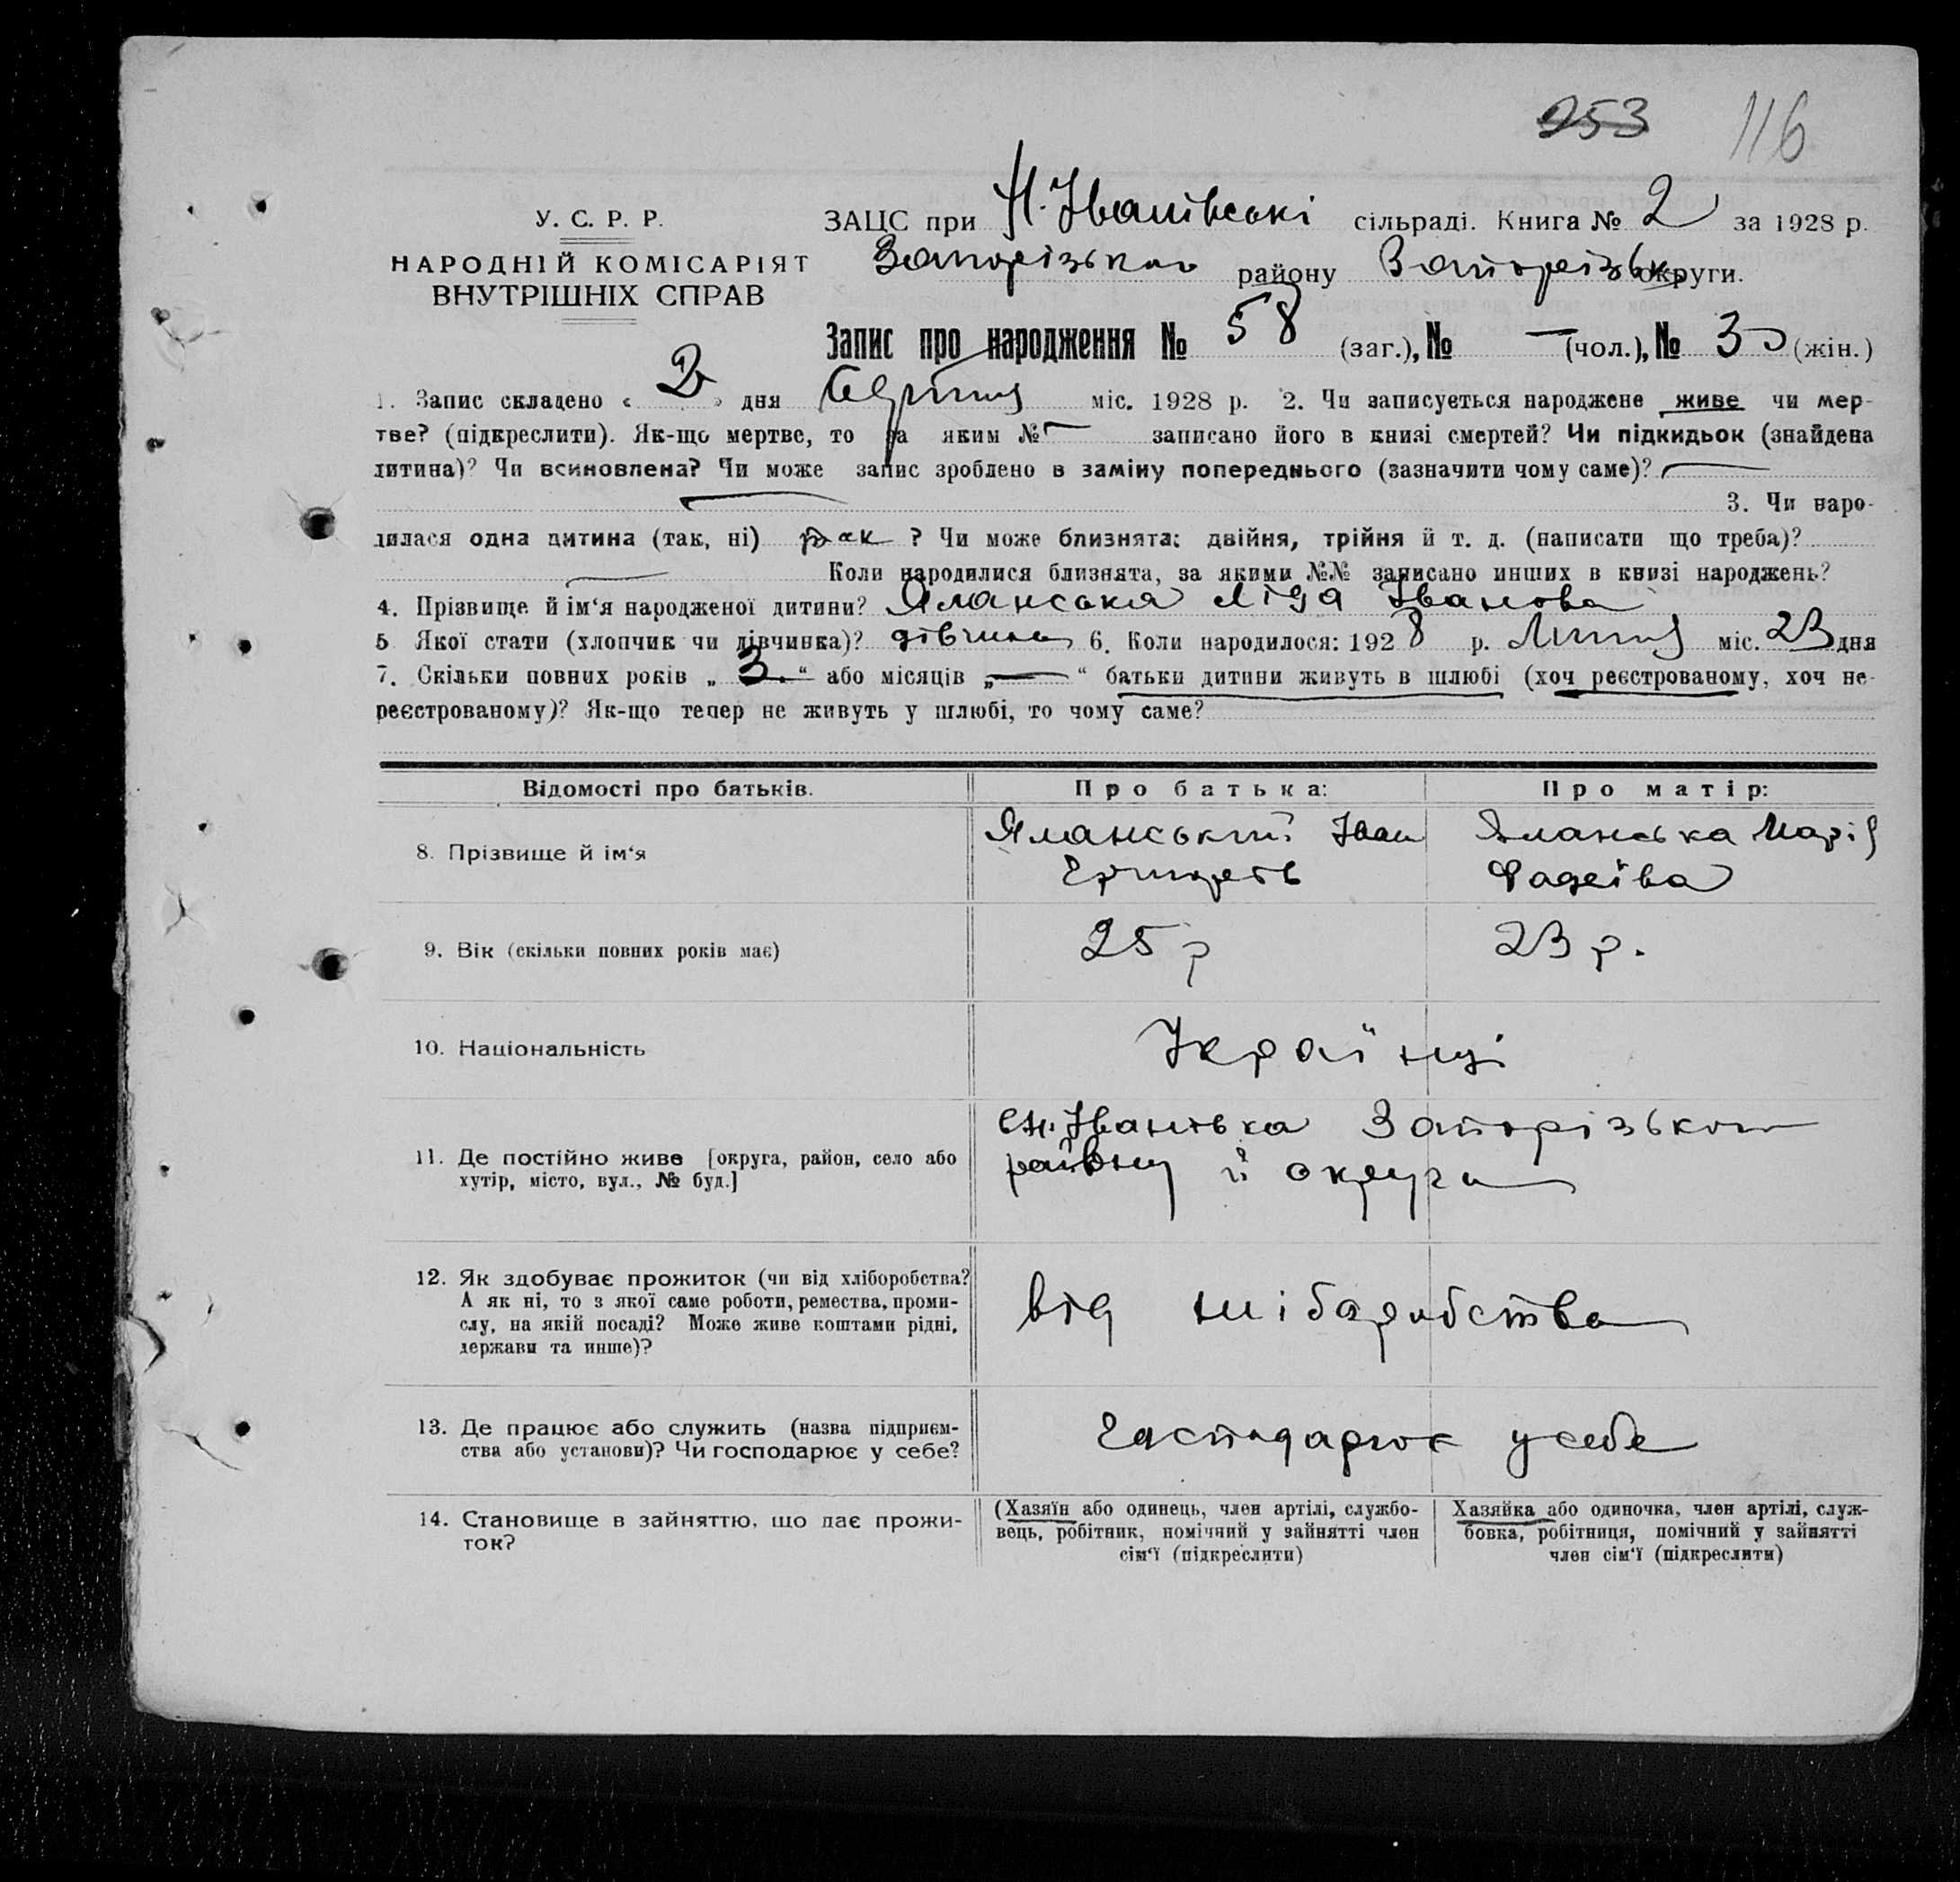 253 116
У. С. Р. Р.
НАРОДНІЙ КОМІСАРІЯТ
ВНУТРІШНІХ СПРАВ
ЗАЦС при Н. Іванівські сільраді. Книга № 2 за 1928 р.
Запорізького району Запорізьк округи.
Запис про народження № 58 (заг.), № — (чол.), № 30 (жін.)
1. Запис складено « 2 » дня Серпня міс. 1928 р. 2. Чи записується народжене живе чи мер-
тве? (підкреслити). Як-що мертве, то за яким № — записано його в книзі смертей? Чи підкидьок (знайдена
дитина)? Чи всиновлена? Чи може запис зроблено в заміну попереднього (зазначити чому саме)? —
— 3. Чи наро-
дилася одна дитина (так, ні) так ? Чи може близнята: двійня, трійня й т. д. (написати що треба)?
— Коли народилися близнята, за якими №№ записано инших в книзі народжень?
4. Прізвище й ім‘я народженої дитини? Яланська Ліда Іванова
5 Якої стати (хлопчик чи дівчинка)? дівчина 6. Коли народилося: 1928 р. Липня міс. 23 дня
7. Скільки повних років „ 3. “ або місяців „ — “ батьки дитини живуть в шлюбі (хоч реєстрованому, хоч не-
реєстрованому)? Як-що тепер не живуть у шлюбі, то чому саме?
Відомості про батьків. Про батька: Про матір:
8. Прізвище й ім‘я Яланський Іван Яланська Марія
Фадеїва
9. Вік (скільки повних років має) 25 р 23 р.
10. Національність Українці
11. Де постійно живе [округа, район, село або хутір, місто, вул., № буд.] с Н. Іванівка Запорізького
району й округи
12. Як здобуває прожиток (чи від хліборобства?
А як ні, то з якої саме роботи, ремества, проми-
слу, на якій посаді? Може живе коштами рідні,
держави та инше)?
від хліборобства
13. Де працює або служить (назва підприєм-
ства або установи)? Чи господарює у себе?
Господарює у себе
14. Становище в зайняттю, що дає прожи-
ток?
(Хазяїн або одинець, член артілі, службо-
вець, робітник, помічний у зайнятті член
сім‘ї (підкреслити)
Хазяйка або одиночка, член артілі, служ-
бовка, робітниця, помічний у зайнятті
член сім‘ї (підкреслити)